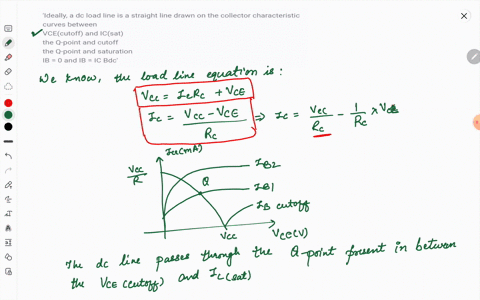 'Ideally, a dc load line is a straight line drawn on the collector characteristic
curves between
VCE(cutoff) and IC(sat)
the Q-point and cutoff
the Q-point and saturation
IB = 0 and IB = IC Bdc'
We know, the load line equation is :
VCC = ICRC + VCE
IC = VCC - VCE / RC ⇒ IC = VCC / RC - 1 / RC × VCE
ICC(mA)
VCC / R
Q
IB2
IB1
IB cutoff
VCC
VCC(V)
The dc line passes through the Q-point present in between
the VCE (cutoff) and IC(sat)